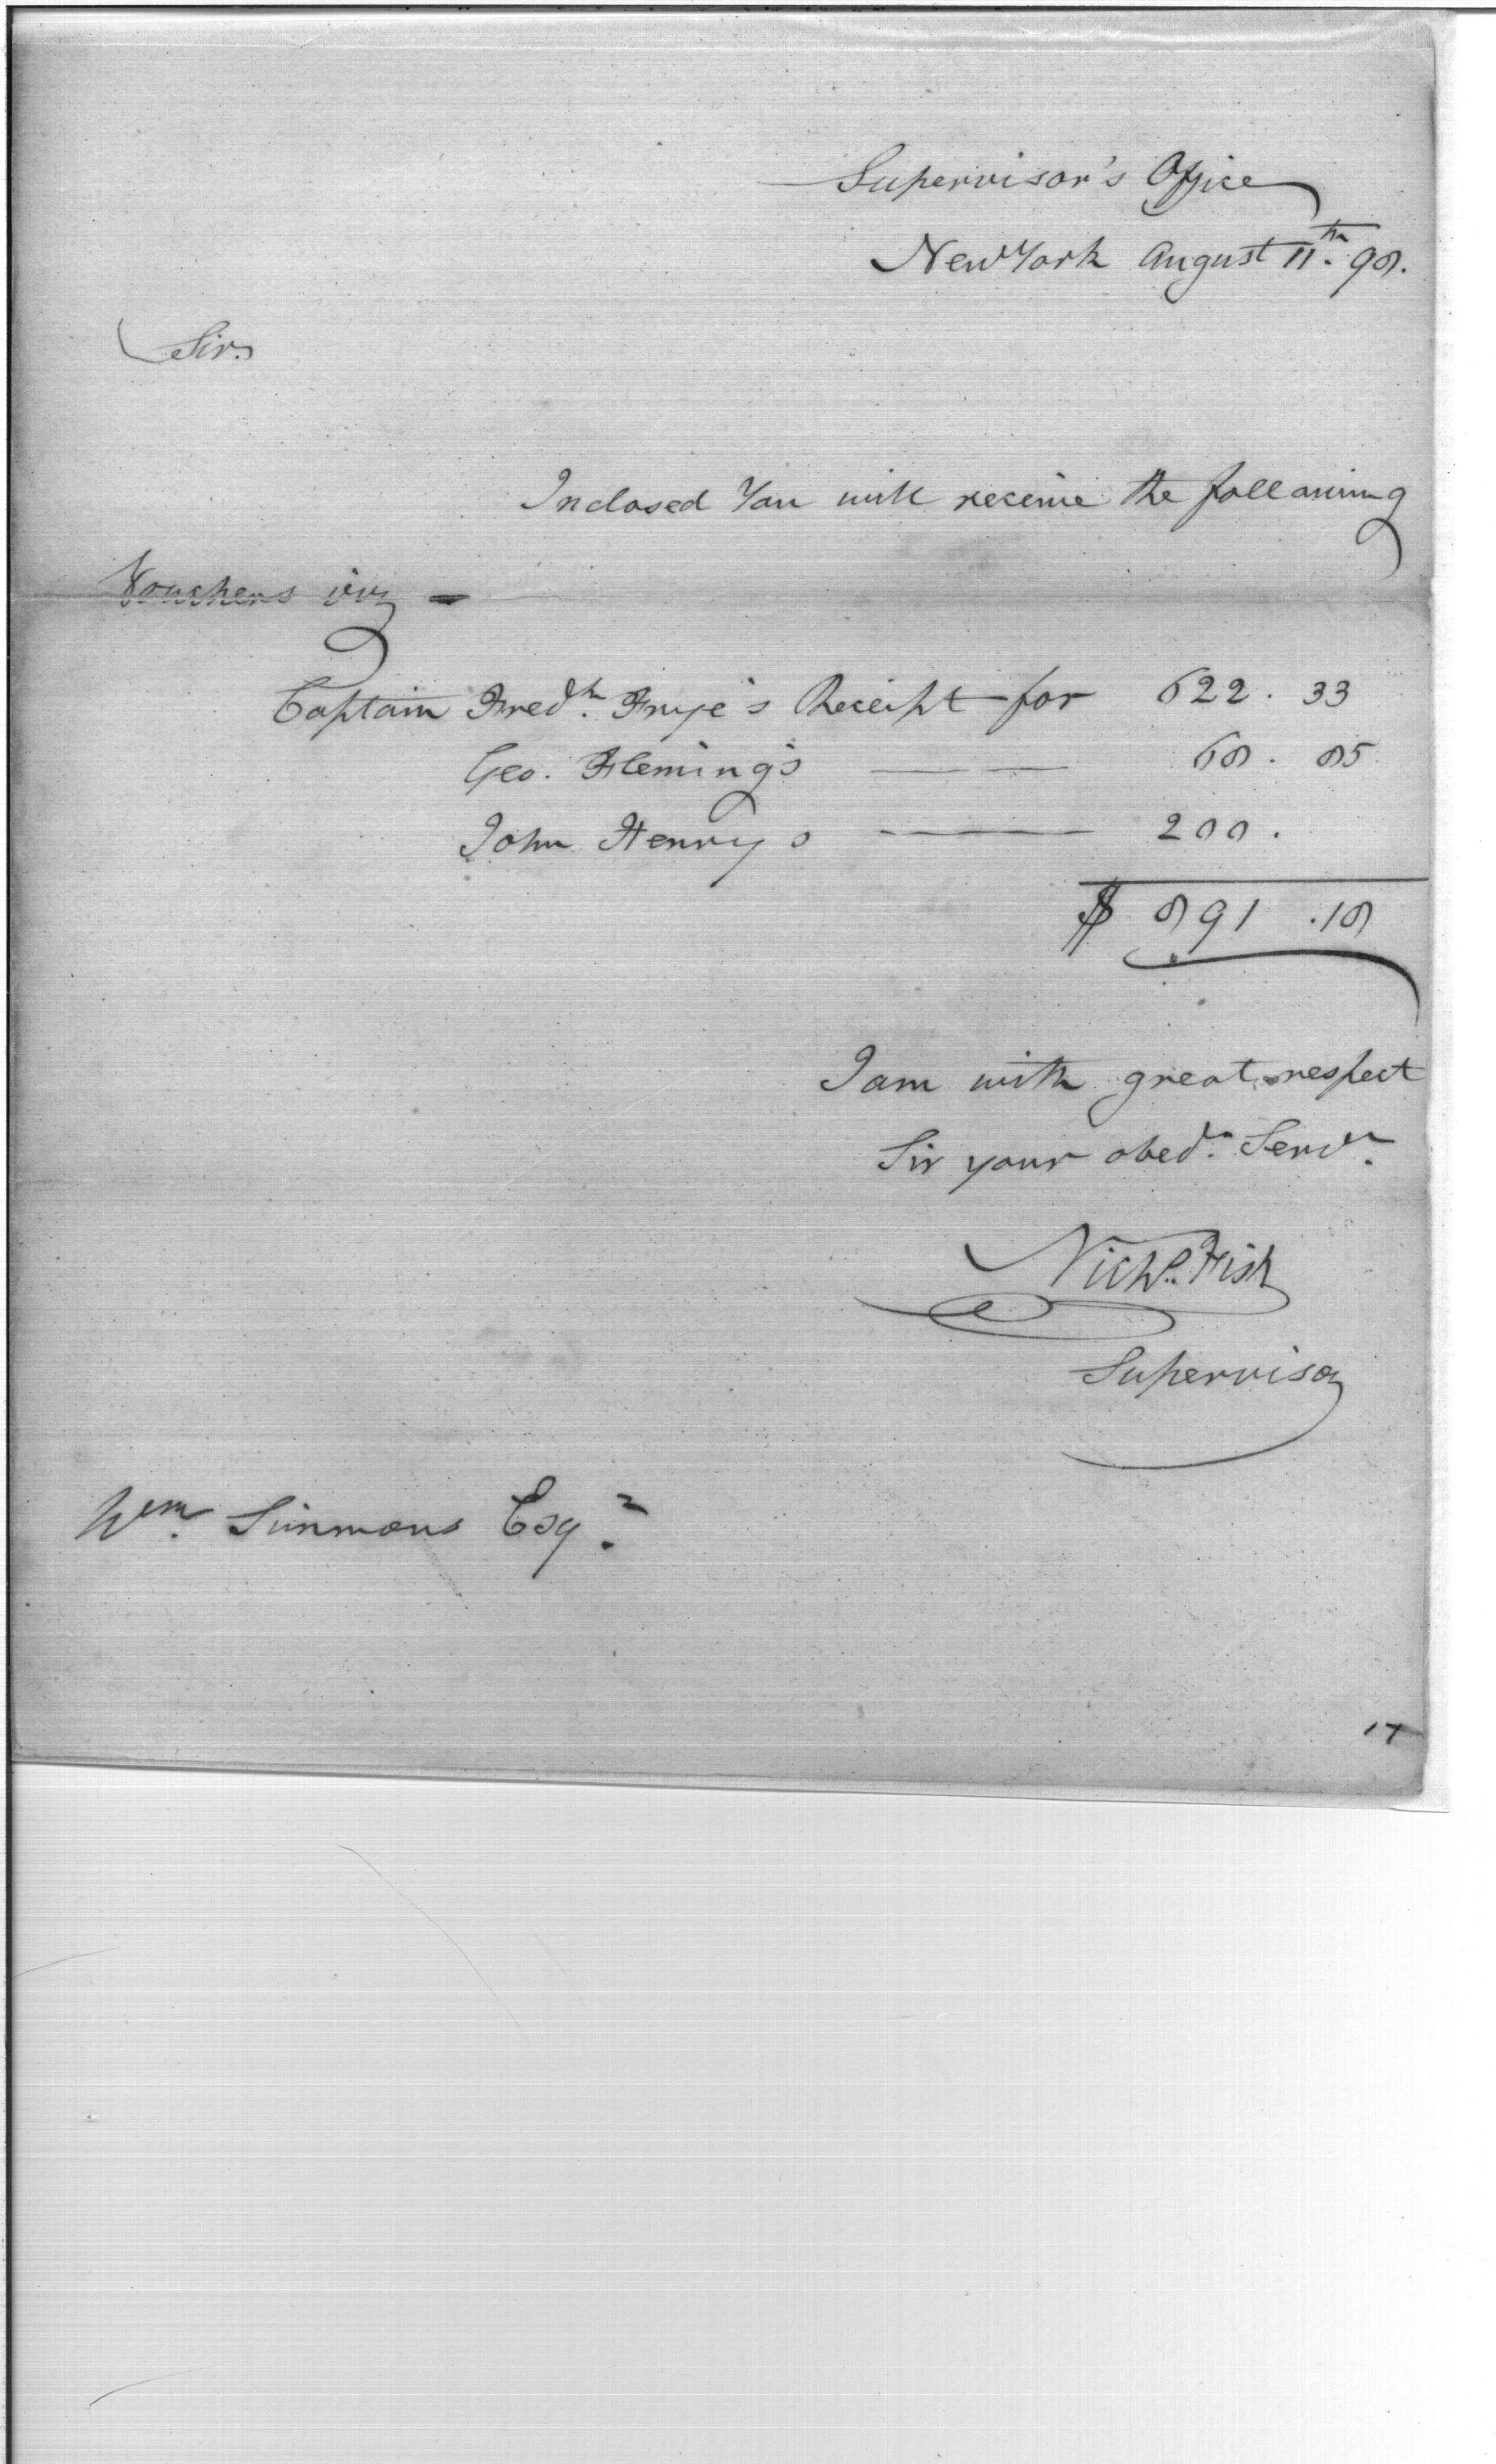 Supervisor's Office
New York August 11th. 98.
Sir
Inclosed You will receive the following
Vouchers viz
Captain Fredk. Frye's Receipt for 622. 33
Geo. Fleming's 68. 85
John Henry's 200.
$ 891 .18
I am with great respect
Sir your obedt. Servt.
Nichs. Fish
Supervisor
Wm. Simmons Esqr.
17